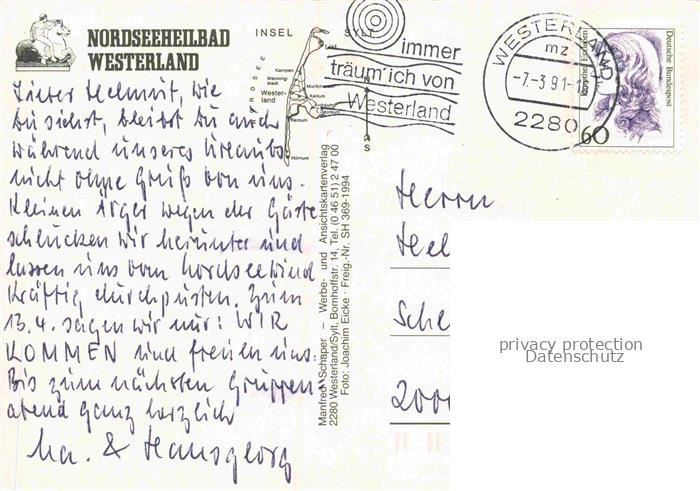 NORDSEEHEILBAD
WESTERLAND
Lieber Helmut, wie
Du siehst, bleibst Du auch
während unseres Urlaubs
nicht ohne Gruß von uns.
Kleinen Ärger wegen der Gäste
schlucken wir herunter und
lassen uns vom Nordseewind
kräftig durchpusten. Zum
13.4. sagen wir nur: WIR
KOMMEN und freuen uns.
Bis zum nächsten Gruppen-
abend ganz herzlich
& Hansgeorg
INSEL SYLT
NORDSEE
List
Kampen
Wenning-
stedt
Wester-
land
Munkmarsch
Keitum
Rantum
Hörnum
S
immer
träum' ich von
Westerland
WESTERLAND
mz
-7.-3.91-1
2280
Deutsche Bundespost
60
Manfred Schaper – Werbe- und Ansichtskartenverlag
2280 Westerland/Sylt, Bomhoffstr. 14, Tel. (0 46 51) 2 47 00
Foto: Joachim Eicke · Freig.-Nr. SH 369-1994
Herrn
Hel
Sche
2000
privacy protection
Datenschutz